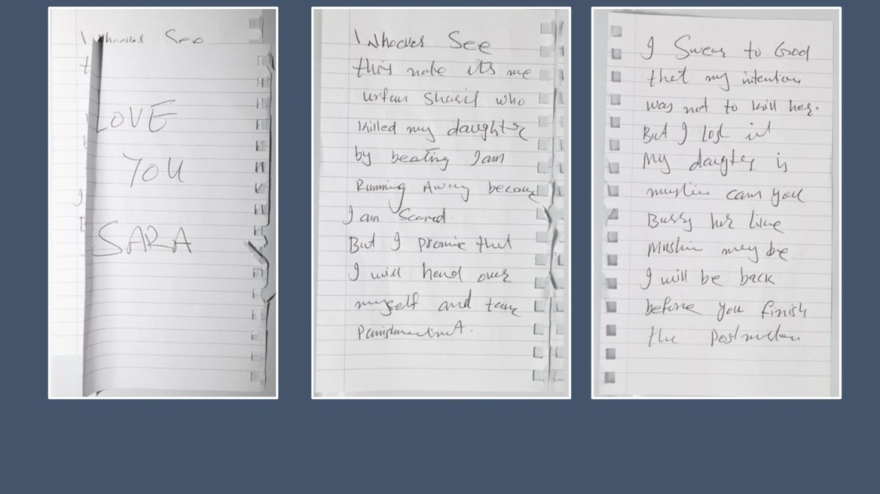 LOVE
YOU
SARA
Whoever See
this note its me
urfan Sharif who
killed my daughter
by beating I am
Running Away because
I am Scared.
But I promise that
I will hand over
myself and take
Punishment.
I Swear to God
that my intention
was not to kill her.
But I lost it
My daughter is
muslim can you
Bury her like
Muslim may be
I will be back
before you finish
the Postmortem